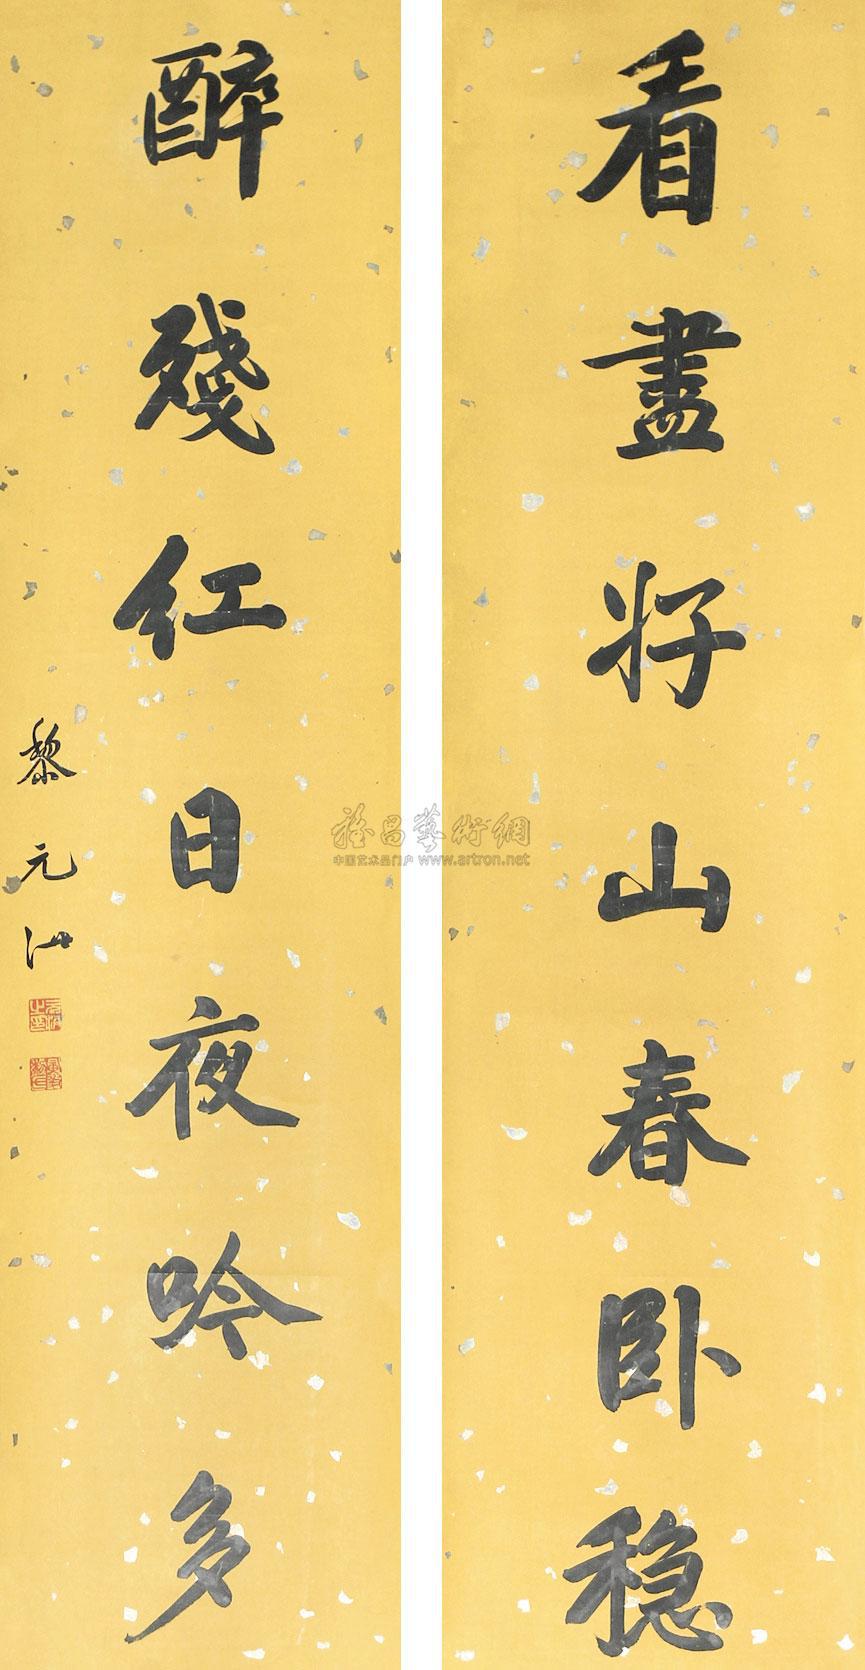 看盡好山春卧穩
醉殘紅日夜吟多
黎元洪
雅昌藝術網
中国艺术品门户 www.artron.net